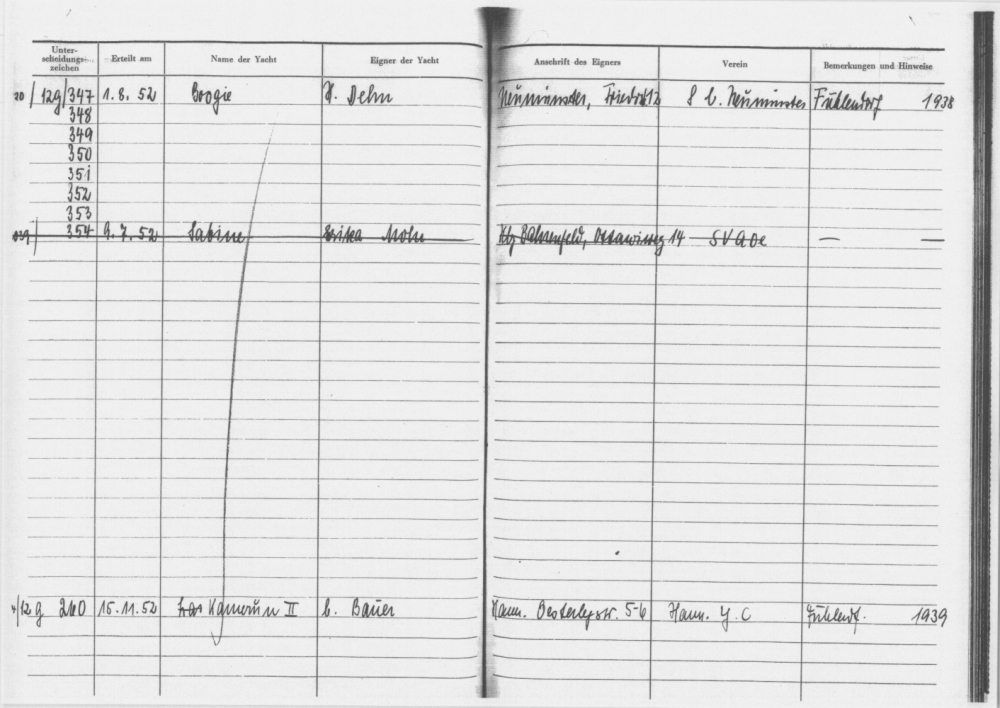 Unter-scheidungs-zeichen Erteilt am Name der Yacht Eigner der Yacht Anschrift des Eigners Verein Bemerkungen und Hinweise
20 / 12g/347 1.8.52 Boogie H. Dehn Neumünster, 12 S. C. Neumünster Fühlendorf 1938
348
349
350
351
352
353
354 9.7.52 Sabine Erika Hbg Bahrenfeld, 14 SVAOe — —
4/12g 260 15.11.52 Kamerun II C. Bauer Hann. Oesterleystr. 5-6 Hann. Y.C 1939